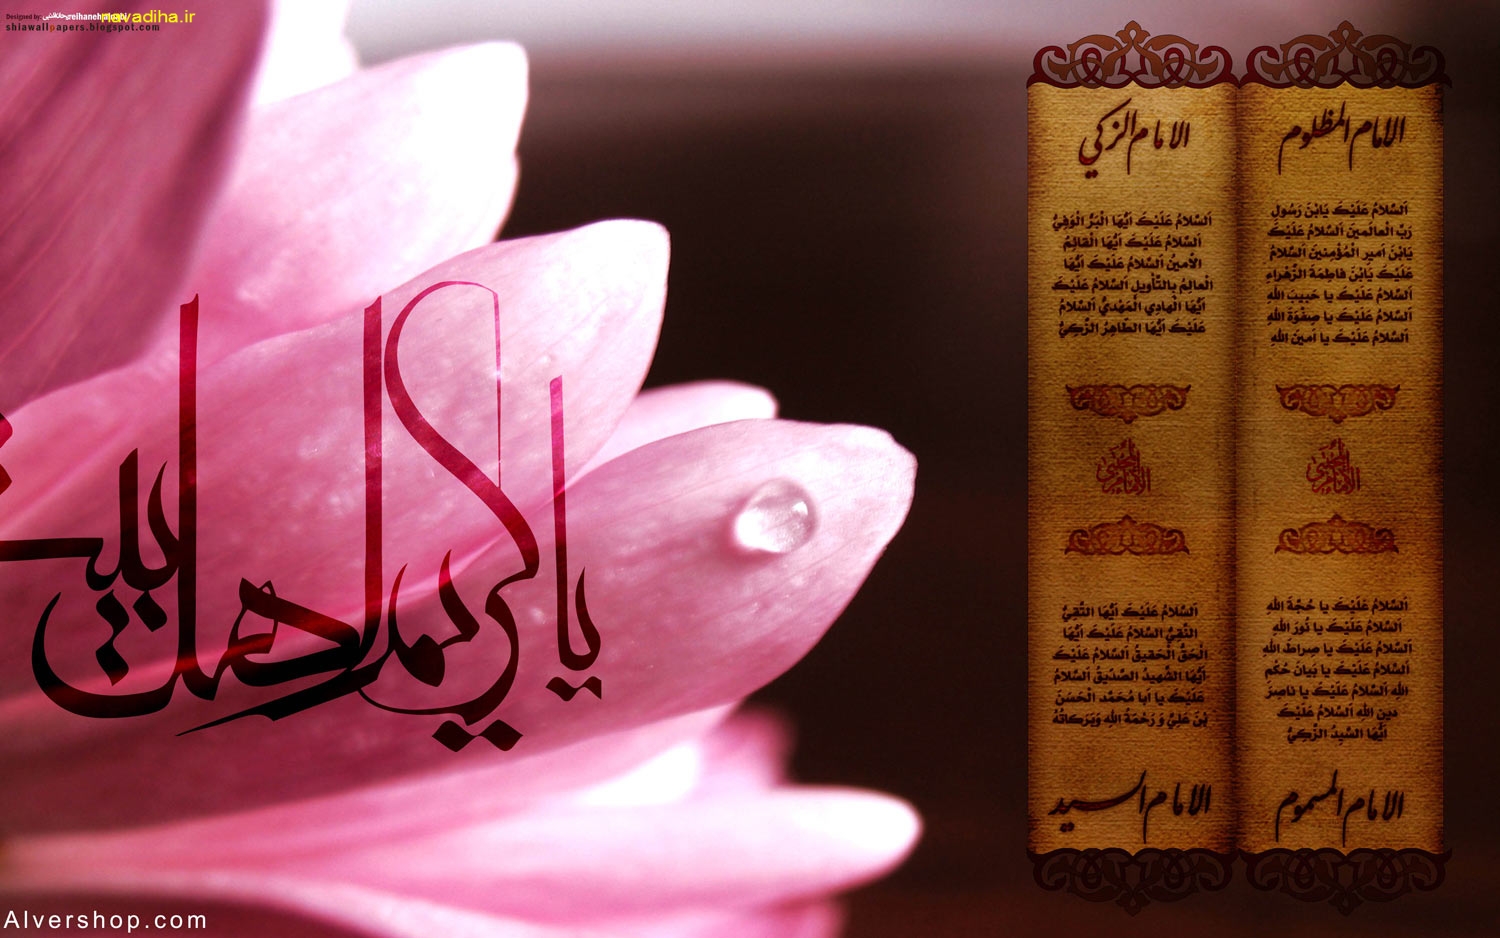 Designed by:
navadiha.ir
shiawallpapers.blogspot.com
يا كريم اهل بيت
الامام المظلوم
اَلسَّلامُ عَلَيْكَ يَابْنَ رَسُولِ
رَبِّ الْعالَمينَ اَلسَّلامُ عَلَيْكَ
يَابْنَ اَميرِ الْمُؤْمِنينَ اَلسَّلامُ
عَلَيْكَ يَابْنَ فاطِمَةَ الزَّهْراءِ
اَلسَّلامُ عَلَيْكَ يا حَبيبَ اللهِ
اَلسَّلامُ عَلَيْكَ يا صِفْوَةَ اللهِ
اَلسَّلامُ عَلَيْكَ يا اَمينَ اللهِ
الامام المجتبى
اَلسَّلامُ عَلَيْكَ يا حُجَّةَ اللهِ
اَلسَّلامُ عَلَيْكَ يا نُورَ اللهِ
اَلسَّلامُ عَلَيْكَ يا صِراطَ اللهِ
اَلسَّلامُ عَلَيْكَ يا بَيانَ حُكْمِ
اللهِ اَلسَّلامُ عَلَيْكَ يا ناصِرَ
دينِ اللهِ اَلسَّلامُ عَلَيْكَ
اَيُّهَا السَّيِّدُ الزَّكِيُّ
الامام المسموم
الامام الزكي
اَلسَّلامُ عَلَيْكَ اَيُّهَا الْبَرُّ الْوَفِيُّ
اَلسَّلامُ عَلَيْكَ اَيُّهَا الْقائِمُ
الْاَمينُ اَلسَّلامُ عَلَيْكَ اَيُّهَا
الْعالِمُ بِالتَّأْويلِ اَلسَّلامُ عَلَيْكَ
اَيُّهَا الْهادِي الْمَهْدِيُّ اَلسَّلامُ
عَلَيْكَ اَيُّهَا الطّاهِرُ الزَّكِيُّ
الامام المجتبى
اَلسَّلامُ عَلَيْكَ اَيُّهَا التَّقِيُّ
النَّقِيُّ اَلسَّلامُ عَلَيْكَ اَيُّهَا
الْحَقُّ الْحَقيقُ اَلسَّلامُ عَلَيْكَ
اَيُّهَا الشَّهيدُ الصِّدّيقُ اَلسَّلامُ
عَلَيْكَ يا اَبا مُحَمَّدٍ الْحَسَنَ
بْنَ عَلِيٍّ وَ رَحْمَةُ اللهِ وَبَرَكاتُهُ
الامام السيد
Alvershop.com